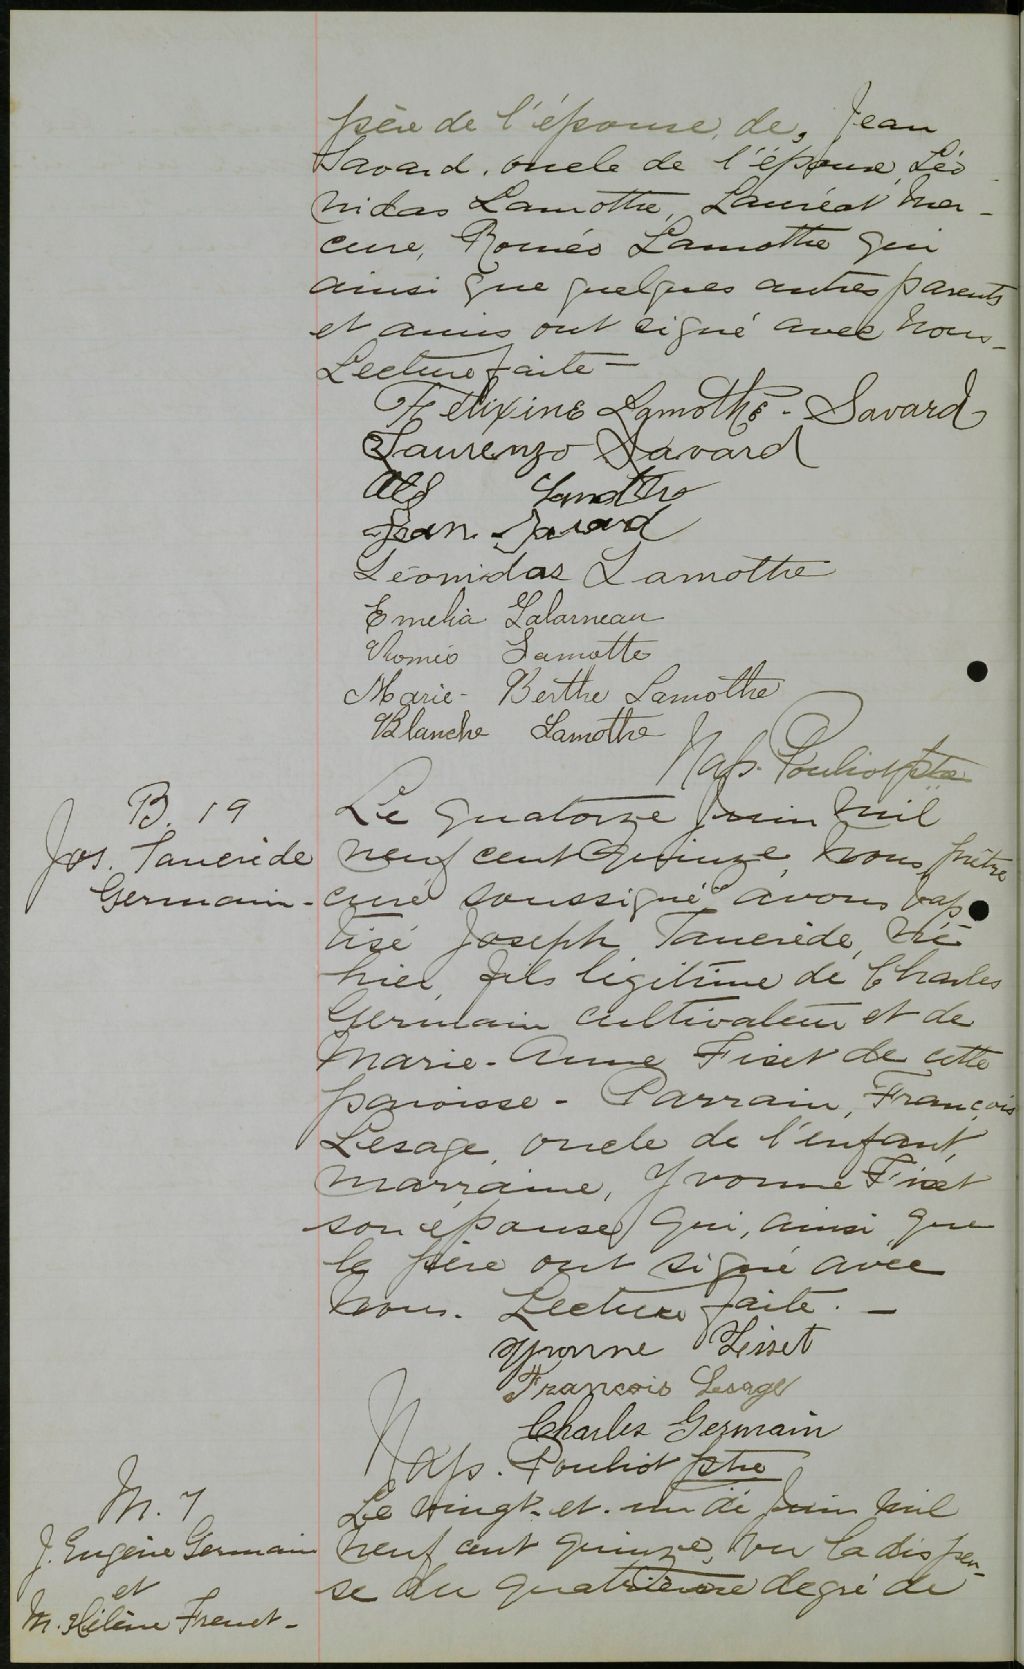 père de l'épouse, de, Jean
Savard, oncle de l'épouse, Léo
nidas Lamothe, Lauréat Mer-
cure, Roméo Lamothe qui
ainsi que quelques autres parents
et amis ont signé avec nous-
Lecture faite -
Félixine Lamothe-Savard
Laurenzo Savard
Alf Lamothe
Jean Savard
Léonidas Lamothe
Emelia Galarneau
Roméo Lamotte
Marie-Berthe Lamothe
Blanche Lamothe
Nap. Pouliot ptre
B. 19
Jos. Tancrède
Germain -
Le quatorze Juin mil
neuf cent quinze, nous, prêtre
curé soussigné avons bap
tisé Joseph Tancrède, né
hier, fils légitime de Charles
Germain cultivateur et de
Marie-Anne Fiset de cette
paroisse - Parrain, François
Lesage, oncle de l'enfant,
marraine, Yvonne Fiset
son épouse qui, ainsi que
le père ont signé avec
nous. Lecture faite. -
Yvonne Fisset
François Lesage
Charles Germain
Nap. Pouliot ptre
M. 7
J. Eugène Germain
et
M. Hélène Frenet -
Le vingt-et-un de Juin mil
neuf cent quinze, vu la dispen-
se du quatrième degré de